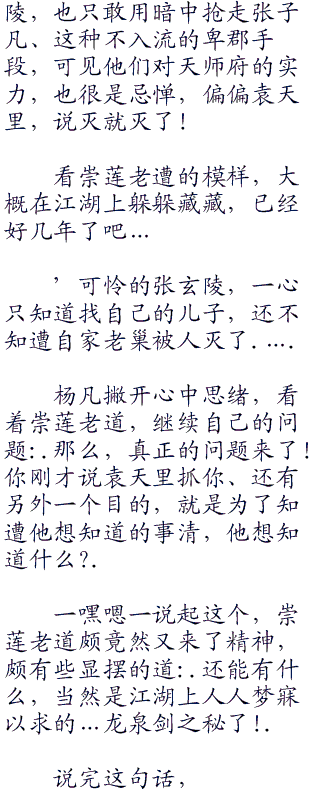 陵，也只敢用暗中抢走张子
凡、这种不入流的卑郡手
段，可见他们对天师府的实
力，也很是忌惮，偏偏袁天
里，说灭就灭了！
看崇莲老遭的模样，大
概在江湖上躲躲藏藏，已经
好几年了吧…
’可怜的张玄陵，一心
只知道找自己的儿子，还不
知遭自家老巢被人灭了.….
杨凡撇开心中思绪，看
着崇莲老道，继续自己的问
题:.那么，真正的问题来了！
你刚才说袁天里抓你、还有
另外一个目的，就是为了知
遭他想知道的事清，他想知
道什么?.
一嘿嗯一说起这个，崇
莲老道颇竟然又来了精神，
颇有些显摆的道:.还能有什
么，当然是江湖上人人梦寐
以求的…龙泉剑之秘了!.
说完这句话，